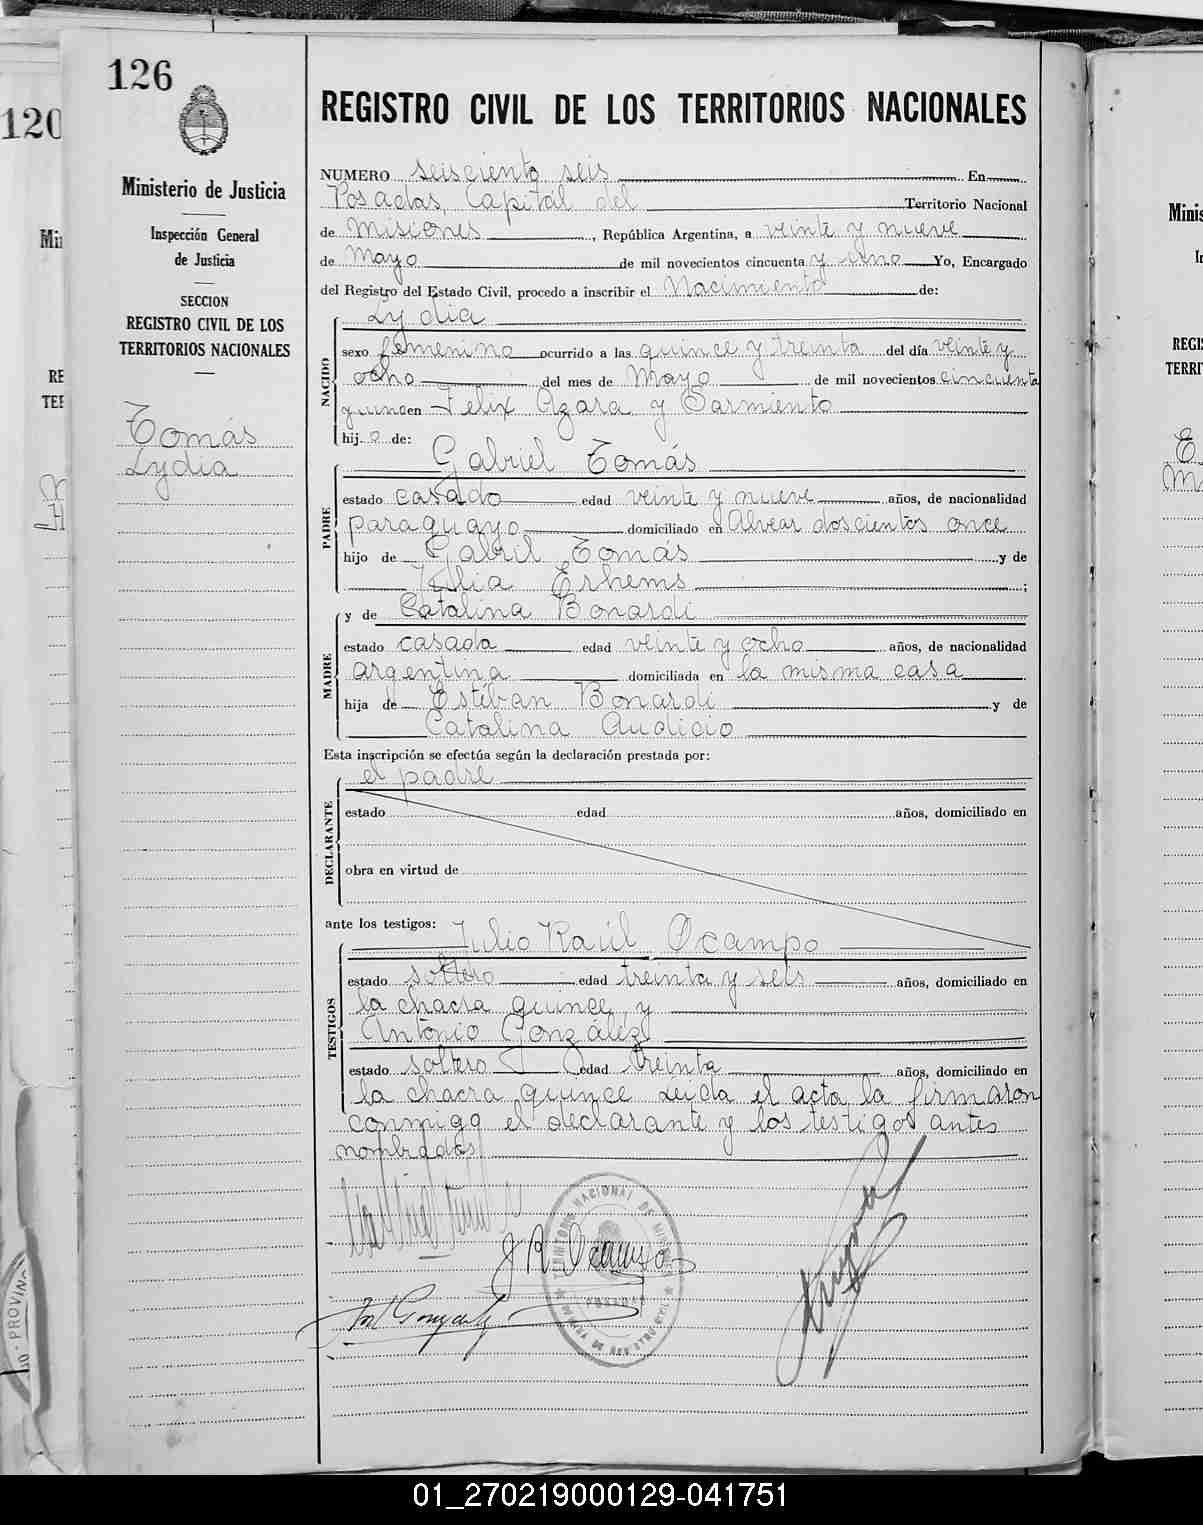 126
120
Ministerio de Justicia
Inspección General
de Justicia
SECCION
REGISTRO CIVIL DE LOS
TERRITORIOS NACIONALES
Tomás
Lydia
REGISTRO CIVIL DE LOS TERRITORIOS NACIONALES
NUMERO seisciento seis En
Posadas, Capital del Territorio Nacional
de Misiones, República Argentina, a veinte y nueve
de Mayo de mil novecientos cincuenta y uno Yo, Encargado
del Registro del Estado Civil, procedo a inscribir el Nacimiento de:
Lydia
NACIDO
sexo femenino ocurrido a las quince y treinta del día veinte y
ocho del mes de Mayo de mil novecientos cincuenta
y uno en Felix Azara y Sarmiento
hij a de:
Gabriel Tomás
PADRE
estado casado edad veinte y nueve años, de nacionalidad
paraguayo domiciliado en Alvear doscientos once
hijo de Gabril Tomás y de
Julia Erhems;
y de Catalina Bonardi
MADRE
estado casada edad veinte y ocho años, de nacionalidad
argentina domiciliada en la misma casa
hija de Estéban Bonardi y de
Catalina Audicio
Esta inscripción se efectúa según la declaración prestada por:
el padre
DECLARANTE
estado edad años, domiciliado en
obra en virtud de
ante los testigos: Julio Raúl Ocampo
TESTIGOS
estado soltero edad treinta y seis años, domiciliado en
la chacra quince, y
Antonio González
estado soltero edad treinta años, domiciliado en
la chacra quince Leida el acta la firmaron
conmigo el declarante y los testigos antes
nombrados
J R Ocampo
TERRITORIO NACIONAL DE MISIONES
POSADAS
01_270219000129-041751